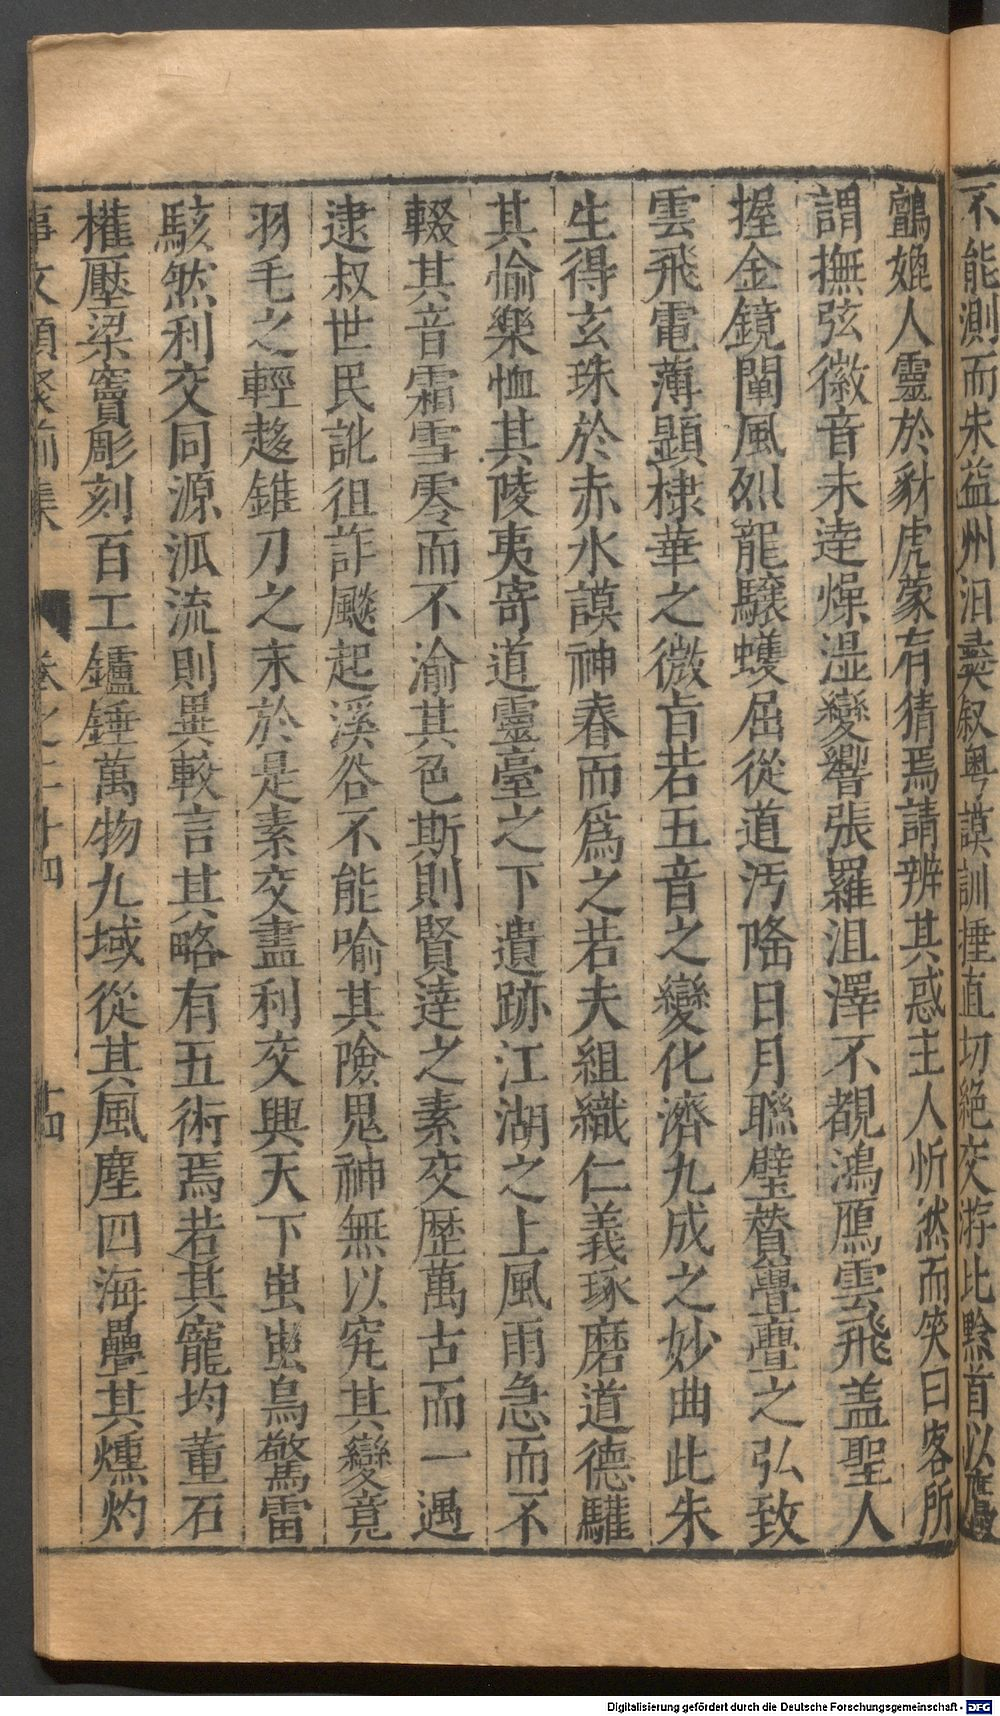 不能測而朱益州汨彝叙粤謨訓捶直切絶交游比黔首以鷹
鸇媲人靈於豺虎蒙有猜焉請辨其惑主人忻然而笑曰客所
謂撫弦徽音未逹燥湿變響張羅沮澤不覩鴻鴈雲飛盖聖人
握金鏡闡風烈龍驤蠖屈從道汚隆日月聯璧賛亹亹之弘致
雲飛電薄顕棣華之微旨若五音之變化濟九成之妙曲此朱
生得玄珠於赤水謨神睿而爲之若夫組織仁義琢磨道德驩
其愉樂恤其陵夷寄道靈臺之下遺跡江湖之上風雨急而不
輟其音霜雪零而不渝其色斯則賢逹之素交歴萬古而一遇
逮叔世民訛徂詐飈起溪谷不能喻其險鬼神無以究其變竟
羽毛之輕趍錐刀之末於是素交盡利交興天下蚩蚩鳥驚雷
駭然利交同源泒流則異較言其略有五術焉若其寵均董石
權壓梁竇彫刻百工鑪錘萬物九域從其風塵四海疊其燻灼
事文類聚前集 卷之二十四 十四
Digitalisierung gefördert durch die Deutsche Forschungsgemeinschaft - DFG